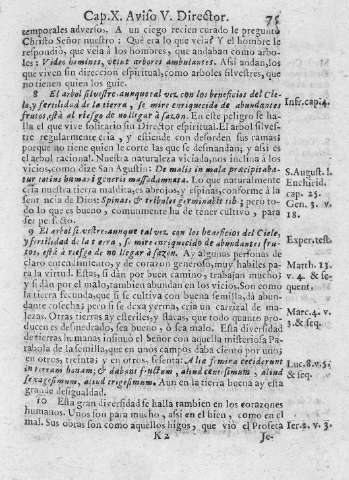 Cap.X. Aviso V. Director. 75
temporales adverlos. A un ciego recien curado le preguntò
Christo Señor nuestro: Què era lo que veia? Y el hombre le
respondiò, que veia à los hombres, que andaban como arbo-
les: Video homines, velut arbores ambulantes. Assi andan, los
que viven sin direccion espiritual, como arboles silvestres, que
no tienen quien los guie.
8 El arbol silvestre aunque tal vez con los beneficios del Cie-
lo, y fertilidad de la tierra, se mire enriquecido de abundantes
frutos, està al riesgo de no llegar à sazon. En este peligro se ha-
lla el que vive solitario sin Director espiritual. El arbol silves-
tre regularmente cria, y estiende con desorden sus ramas
porque no tiene quien le corte las que se desmandan; y assi es
el arbol racional. Nuestra naturaleza viciada, nos inclina à los
vicios, como dize San Agustin: De malis in mala præcipitaba-
tur totius humani generis massa damnata. Lo que naturalmente
cria nuestra tierra maldita, es abrojos, y espinas, conforme à la
sentencia de Dios: Spinas, & tribulos germinabit tibi; pero to-
do lo que es bueno, comunmente ha de tener cultivo, para
ser perfecto.
9 El arbol silvestre aunque tal vez con los beneficios del Cielo,
y fertilidad de la tierra, se mire enriquecido de abundantes fru-
tos, està à riesgo de no llegar à sazon. Ay algunas personas de
claro entendimiento, y de corazon generoso, muy habiles pa-
ra la virtud. Estas, si dàn por buen camino, trabajan mucho;
y si dàn por el malo, tambien abundan en los vicios. Son como
la tierra fecunda, que si se cultiva con buena semilla, dà abun-
dante colecha; pero si se dexa yerma, cria un carrizal de ma-
lezas. Otras tierras ay esteriles, y flacas, que todo quanto pro-
ducen es desmedrado, sea bueno, ò sea malo. Esta diversidad
de tierras humanas insinuò el Señor con aquella misteriosa Pa-
rabola de la semilla, que en unos campos daba ciento por uno;
en otros, treinta; y en otros, sesenta: Alia semina ceciderunt
in terram bonam; & dabant fructum, aliud centesimum, aliud
sexagesimum, aliud trigesimum. Aun en la tierra buena ay esta
grande desigualdad.
10 Esta gran diversidad se halla tambien en los corazones
humanos. Unos son para mucho, assi en el bien, como en el
mal. Sus obras son como aquellos higos, que viò el Profeta
K 2 Je-
Infr. cap. 4.
S. August. l.
Enchirid.
cap. 25.
Gen. 3. v.
18.
Exper. test.
Matth. 13.
v. 4. & se
quent.
Marc. 4. v.
3. & seq.
Luc. 8. v. 5.
& seq.
Ier. 2. v. 3.